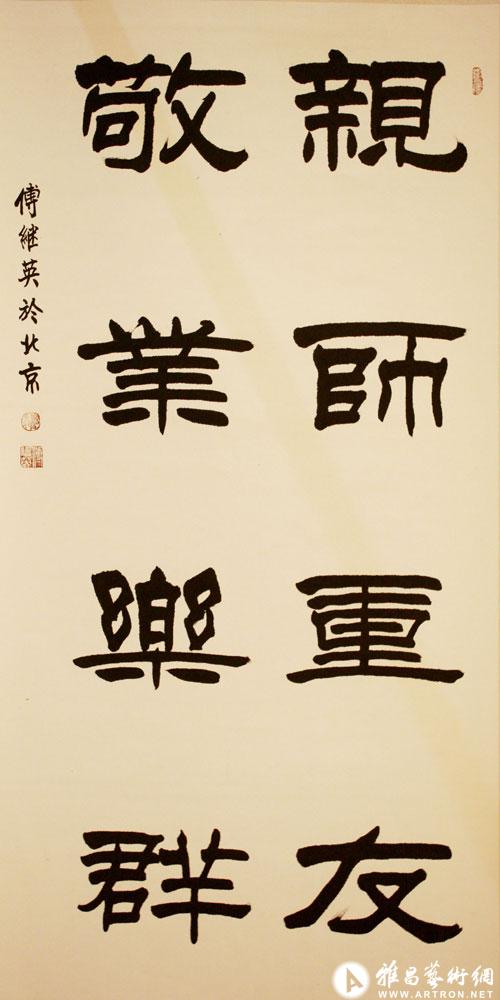 親師重友
敬業樂群
傅继英於北京
雅昌藝術網
WWW.ARTRON.NET